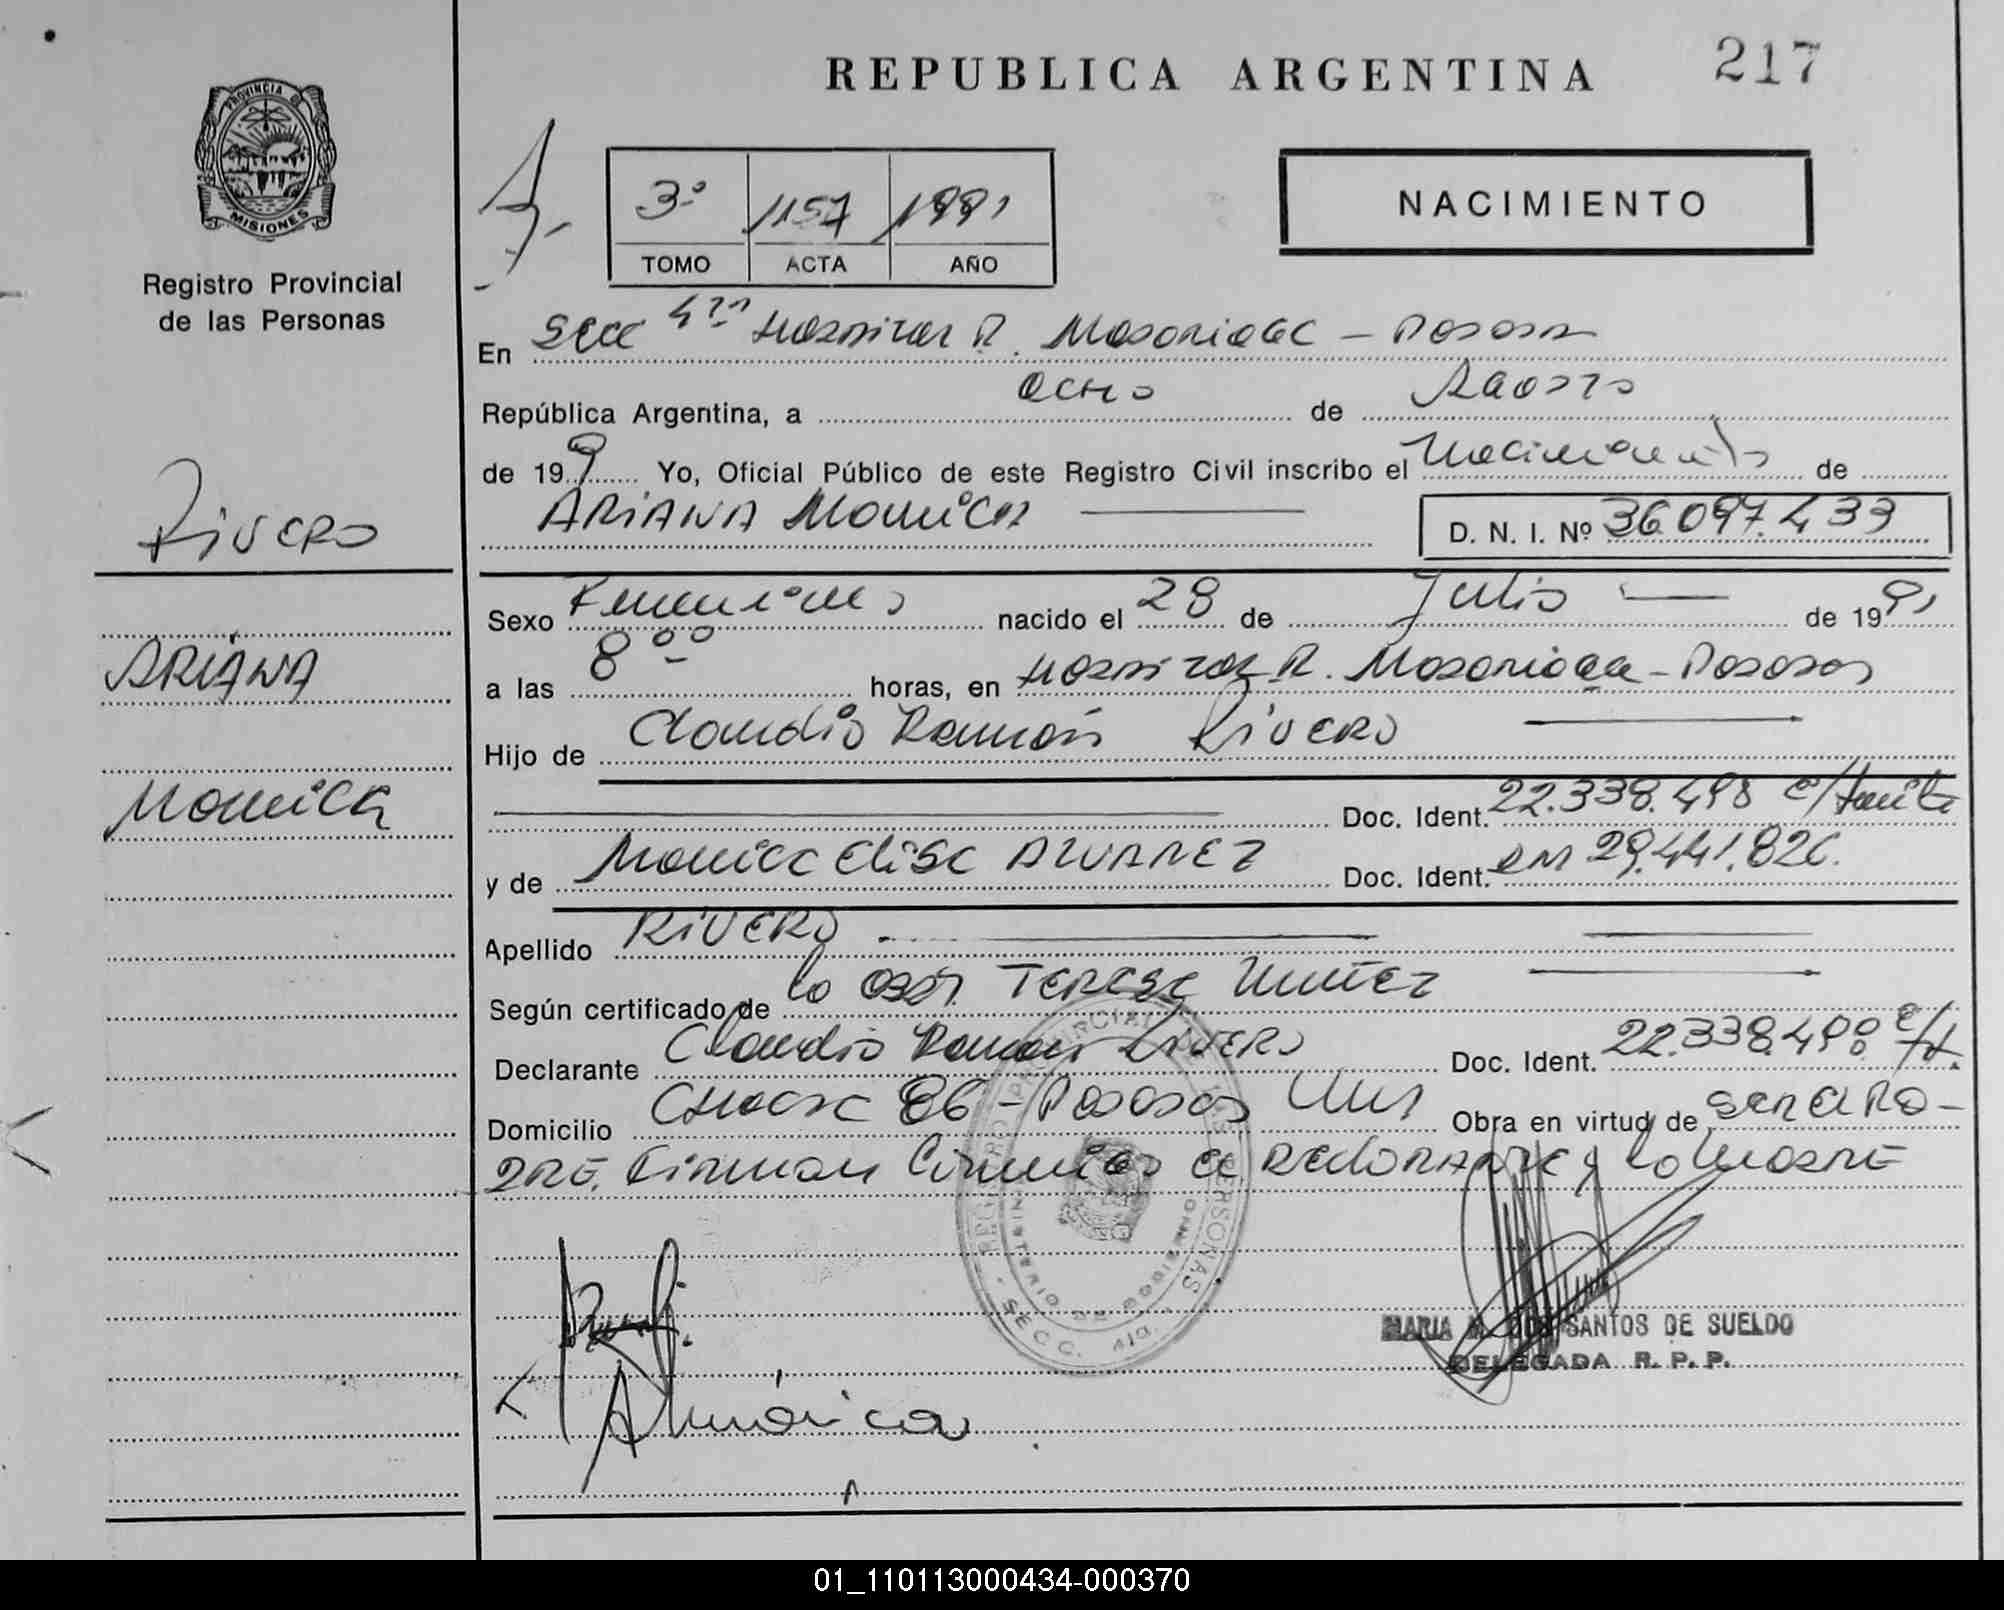 REPUBLICA ARGENTINA
217
PROVINCIA DE
MISIONES
Registro Provincial
de las Personas
3º 1157 1991
TOMO ACTA AÑO
NACIMIENTO
En Secc 4ta Hospital R. Madariaga - Posadas
República Argentina, a ocho de Agosto
de 199 Yo, Oficial Público de este Registro Civil inscribo el Nacimiento de
ARIANA MONICA D. N. I. Nº 36.097.433
Rivero
Sexo Femenino nacido el 28 de Julio de 1991
ARIANA
a las 8 00 horas, en Hospital R. Madariaga - Posadas
Hijo de Claudio Ramón Rivero
Monica
Doc. Ident. 22.338.498 c/tramite
y de Monica Elisa ALVAREZ Doc. Ident. DNI 29.441.826.
Apellido RIVERO
Según certificado de la Obst. Teresa Nuñez
Declarante Claudio Ramon Rivero Doc. Ident. 22.338.498 c/t.
Domicilio 86 - Posadas Mnes Obra en virtud de ser el Pa-
dre. Firman Conmigo el declarante y la Madre
REGISTRO PROVINCIAL DE LAS PERSONAS
MINISTERIO DE GOBIERNO
SECC. 4ta.
MARIA DOS SANTOS DE SUELDO
DELEGADA R. P. P.
01_110113000434-000370